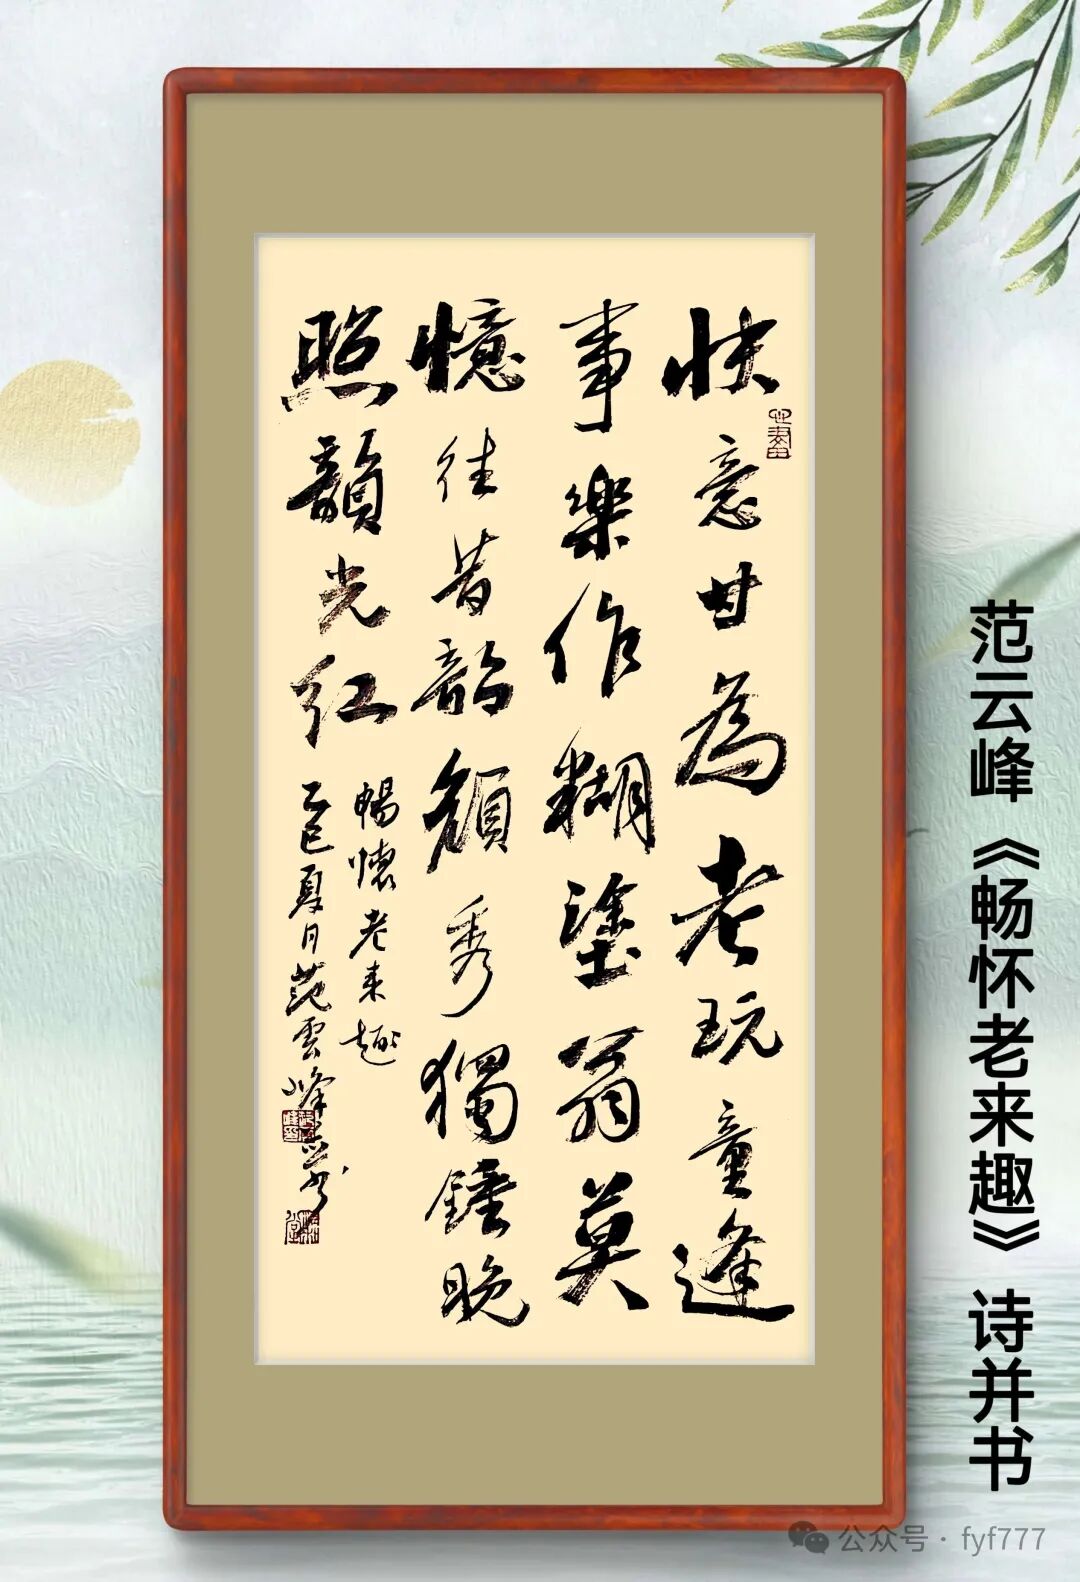 快意甘為老玩童逢
事樂作糊塗翁莫
憶往昔韶顏秀獨鍾晚
照韻光紅
暢懷老来趣
乙巳夏月范雲峰
范云峰《畅怀老来趣》诗并书
公众号·fyf777